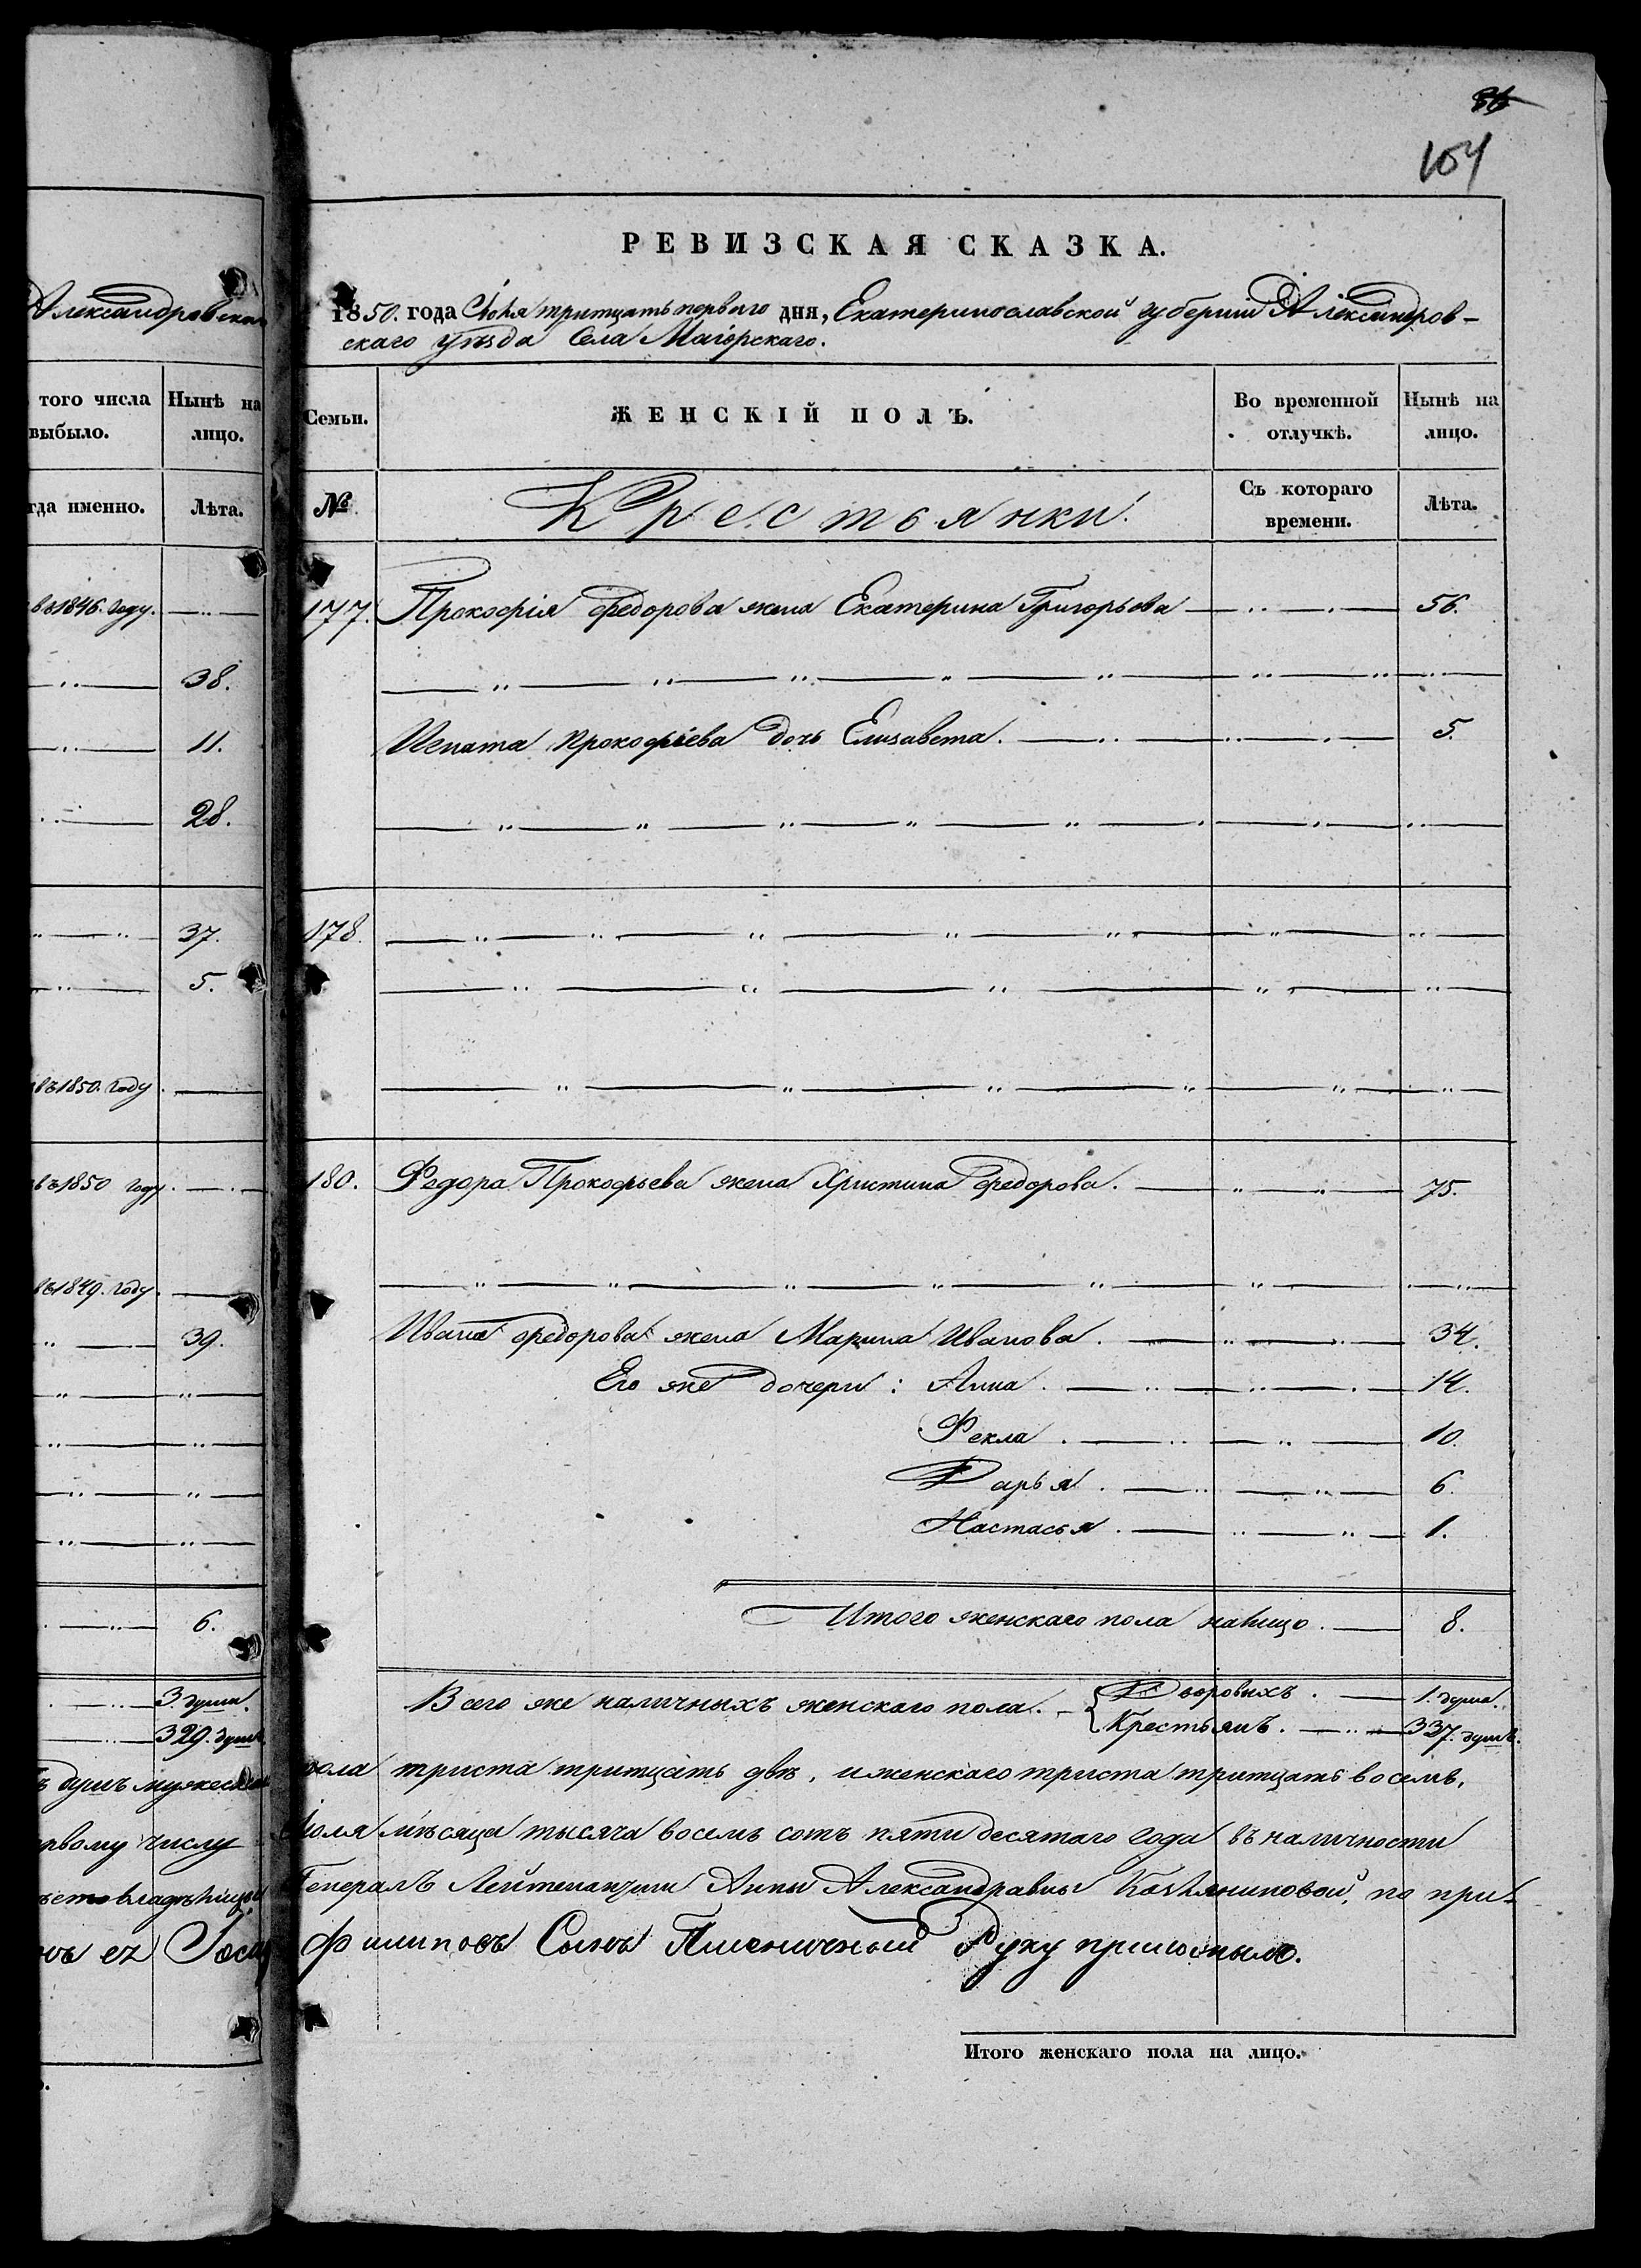 86
104
Александровска
того числа
выбыло.
Нынѣ на
лицо.
гда именно.
Лѣта.
въ 1846. году.
38.
11.
28.
37.
5.
въ 1850. году.
въ 1850 году.
въ 1849. году.
39.
6.
3. души.
329. душъ
душъ мужеска
рвому числу
владѣлицы
ея Госп
РЕВИЗСКАЯ СКАЗКА.
1850. года Іюля тритцать перваго дня, Екатеринославской губерніи Александров-
скаго уѣзда Села Маіорскаго.
Семьи.
ЖЕНСКІЙ ПОЛЪ.
Во временной
отлучкѣ.
Нынѣ на
лицо.
№
Крестьянки.
Съ котораго
времени.
Лѣта.
177. Прокофія Федорова жена Екатерина Григорьева 56.
Ипата Прокофіева дочь Елизавета. 5.
178.
180. Федора Прокофьева жена Христина Федорова. 75.
Ивана Федорова жена Марина Иванова. 34.
Его же дочери: Анна. 14.
Фекла. 10.
Дарья. 6.
Настасья. 1.
Итого женскаго пола налицо. 8.
Всего же наличныхъ женскаго пола. Дворовыхъ. 1. душа.
Крестьянъ. 337. душъ.
пола триста тритцать двѣ, и женскаго триста тритцать восемь,
Іюля мѣсяца тысяча восемь сотъ пяти десятаго года въ наличности
Генералъ Лейтенантши Анны Александравны по при-
Филиповъ Сынъ Пшеничный Руку приложилъ.
Итого женскаго пола на лицо.